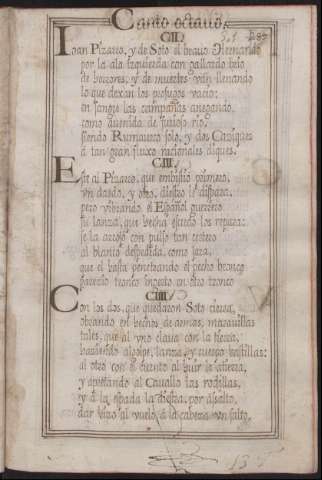 Canto octauo,
CII.
Ioan Pizarro, y de Soto el brauo Hernando
por la ala izquierda con gallardo brio
de horrores, y de muertes van llenando
lo que dexan los profugos vacio:
en sangre las campañas anegando,
como auenida de furioso rio,
siendo Rumauisco solo, y dos Caziques
à tan gran fluxo racionales diques.
CIII.
Este al Pizarro, que embistio primero,
vn dardo, y otro, diestro le dispara,
pero vibrando el Español guerrero
su lanza, que hecha escudo los repara:
se la arrojò con pulso tan certero
al blanco despedida, como jara,
que el hasta penetrando el pecho bronco
pareciò tronco ingerto en otro tronco
CIIII.
Con los dos, que quedaron Soto cierra,
obrando en hechos de armas, marauillas
tales, que al vno claua con la tierra,
haziendo al golpe, lanza, y cuerpo hastillas:
al otro con el cuento al huir
y apretando al Cauallo las rodillas,
y à la espada la diestra, por asalto,
dar hizo al vuelo, à la cabeza vn salto,